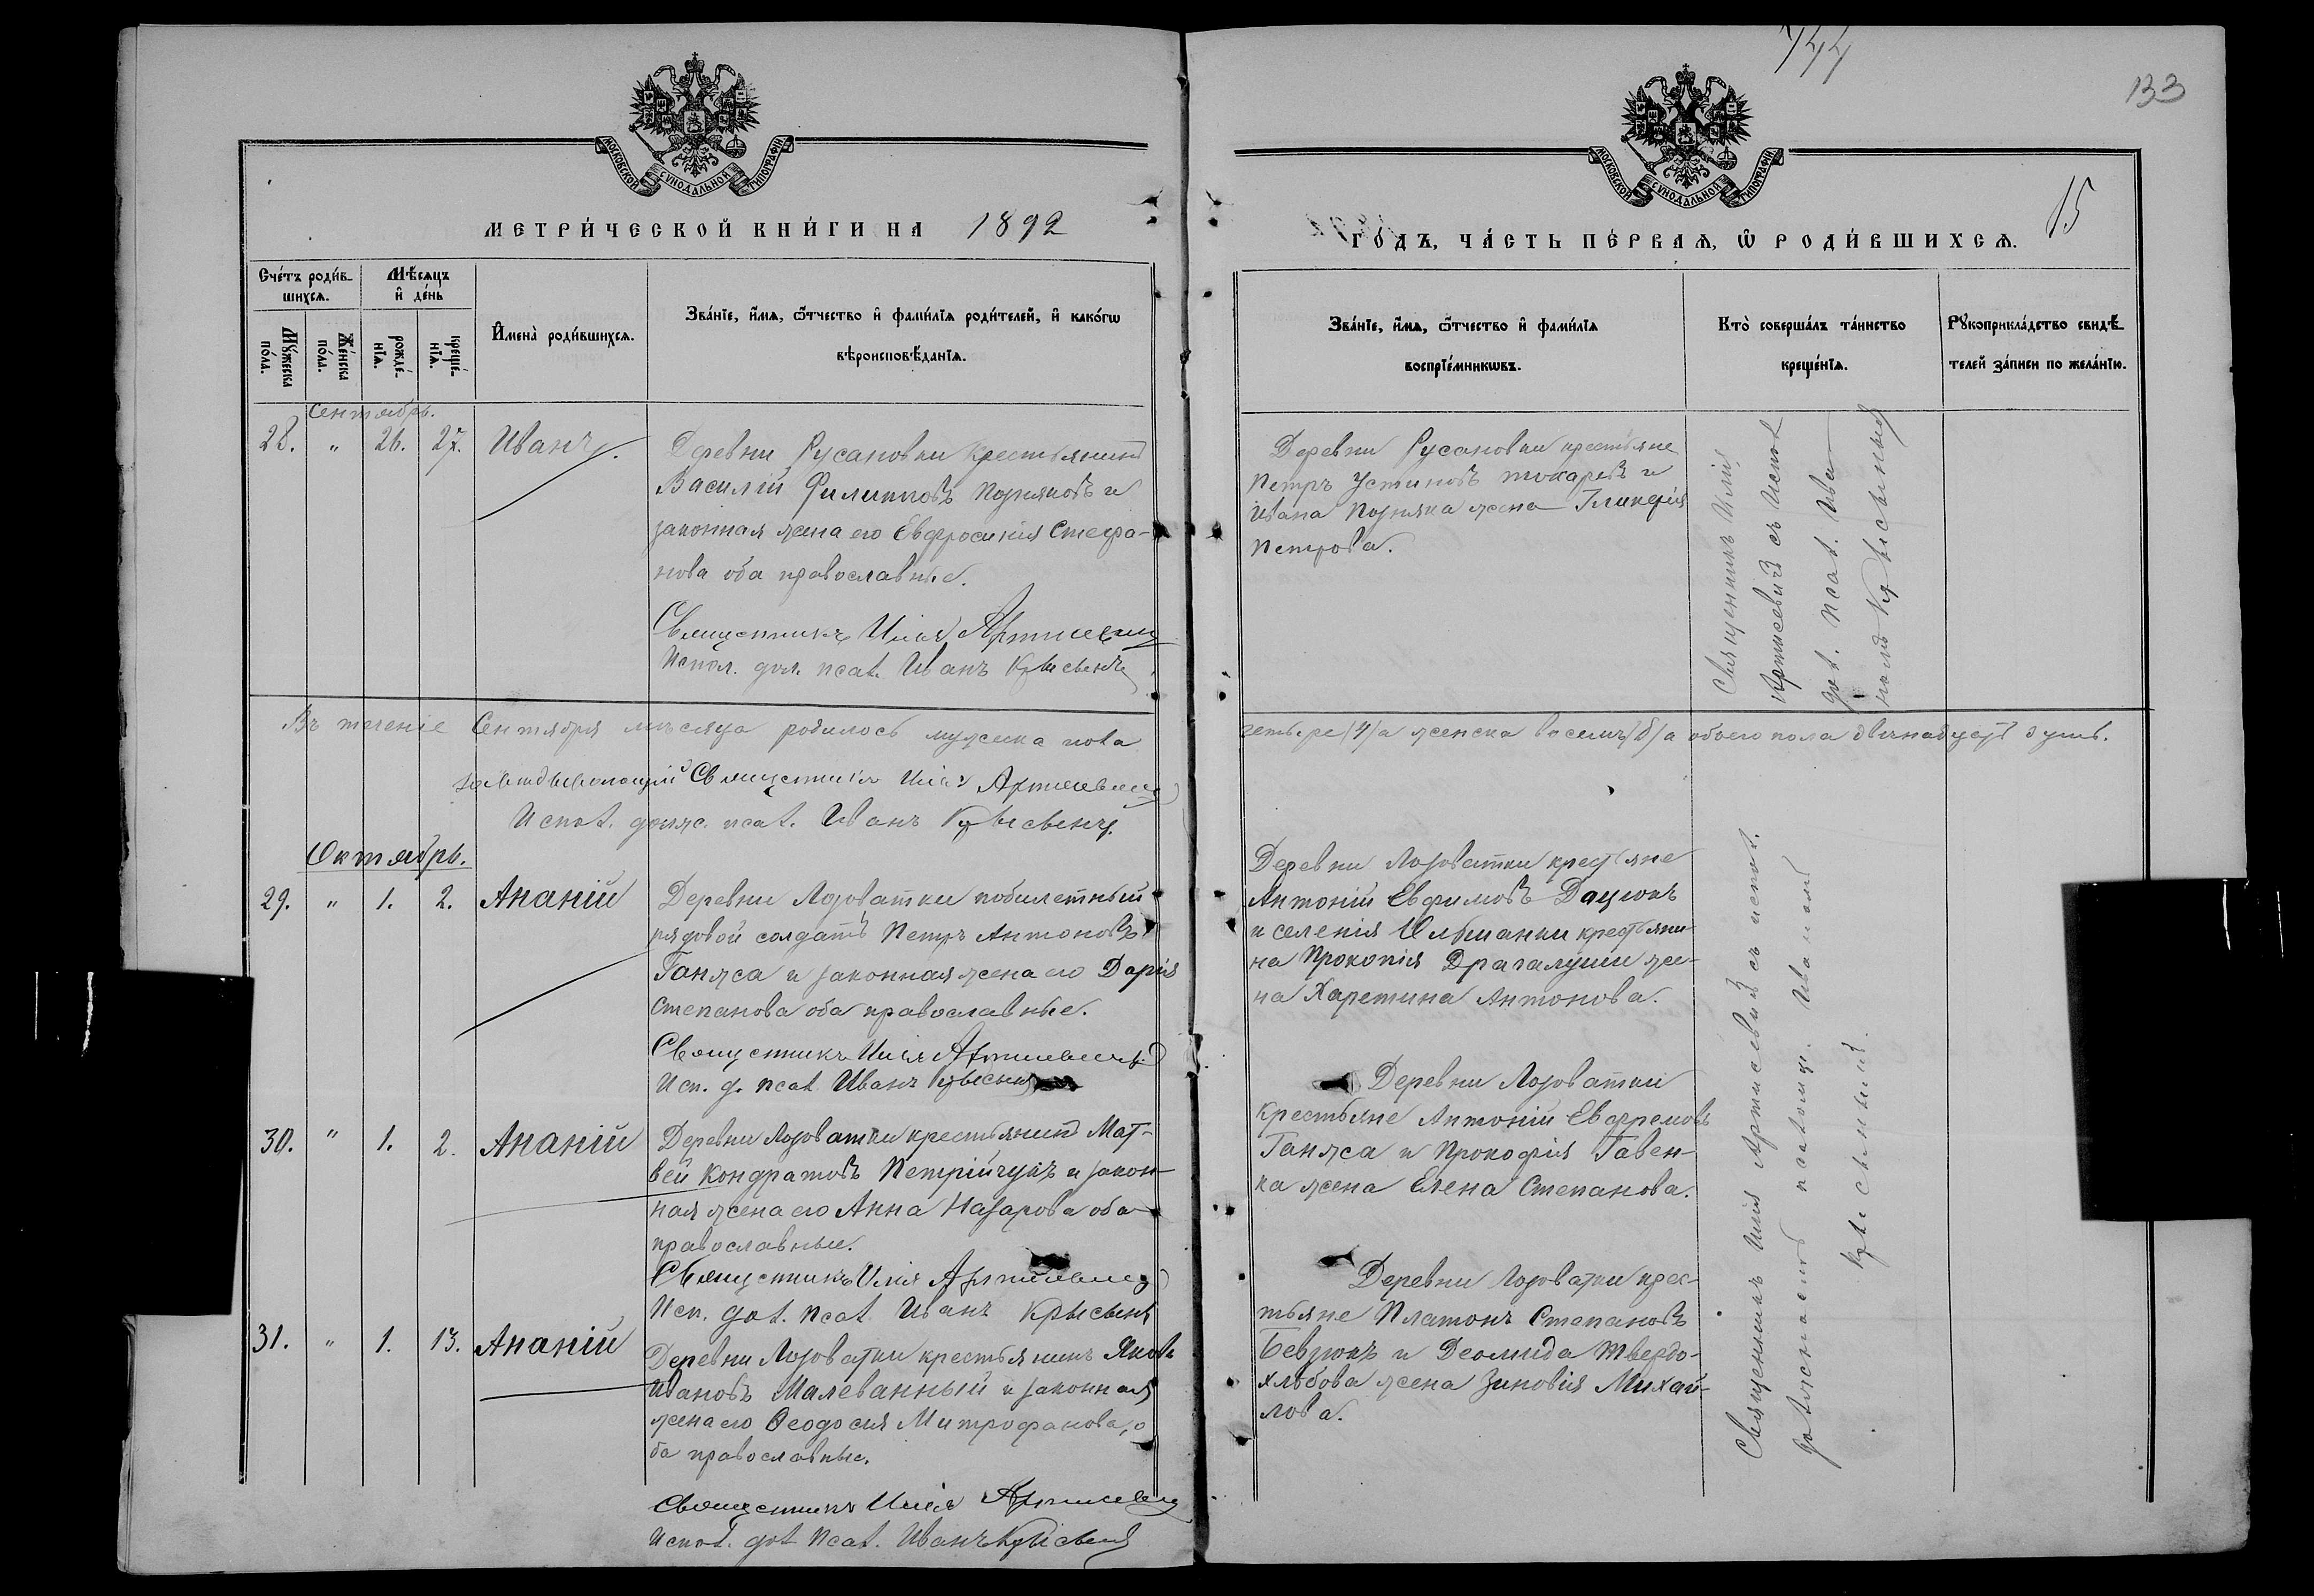 744
133
МОСКОВСКОЙ СѴНОДАЛЬНОЙ ТИПОГРАФІИ
МОСКОВСКОЙ СѴНОДАЛЬНОЙ ТИПОГРАФІИ
15
МЕТРИ́ЧЕСКОЙ КНИ́ГИ НА 1892
ГО́ДЪ, ЧА́СТЬ ПЕ́РВАѦ, Ѽ РОДИ́ВШИХСѦ.
Сче́тъ роди́в-
шихсѧ.
Мѣ́сѧцъ
и҆ де́нь
Мꙋ́жеска
по́ла.
Же́нска
по́ла.
рожде́-
нїѧ.
креще́-
нїѧ.
И҆мена̀ роди́вшихсѧ.
Зва́нїе, и҆́мѧ, ѻ҆́тчество и҆ фами́лїѧ роди́телей, и҆ како́гѡ
вѣроисповѣ́данїѧ.
Зва́нїе, и҆́мѧ, ѻ҆́тчество и҆ фами́лїѧ
воспрїе́мникѡвъ.
Кто̀ соверша́лъ та́инство
креще́нїѧ.
Рꙋкоприкла́дство свидѣ́-
телей за́писи по жела́нїю.
Сентябрь.
28. " 26. 27. Иванъ.
Деревни Русановки крестьянинъ
Василій Филиповъ Позняковъ и
законная жена его Евфросинія Стефа-
нова оба православные.
Священникъ Илія Артисевичъ
Испол. дол. псал. Иванъ Крысвенъ
Деревни Русановки крестьяне
Петръ Устиновъ токаревъ и
Ивана Позняка жена Гликерія
Петрова.
Священникъ Илія
Артисевичъ съ Испол
дол. псал. Ива-
номъ Крысвеннымъ
Въ теченіе Сентября мѣсяца родилось мужеска пола
четыре (4) а женска восемь (8) а обоего пола двѣнадцать душъ.
завѣдывающій Священникъ Илія Артисевичъ
Испол. долж. псал. Иванъ Крысвенъ.
Октябрь.
29. " 1. 2. Ананій
Деревни Лозоватки побилетный
рядовой солдатъ Петръ Антоновъ
Ганжа и законная жена его Дарія
Степанова оба православные.
Священникъ Илія Артисевичъ
Исп. д. псал Иванъ Крысвенъ
Деревни Лозоватки крестьяне
Антоній Евфимовъ Дацюкъ
и селенія крестьяни-
на Прокопія Драгалуши же-
на Харетина Антонова.
30. " 1. 2. Ананій
Деревни Лозоватки крестьянинъ Мат-
вей Кондратовъ Петрійчукъ и закон-
ная жена его Анна Назарова оба
православные.
Священникъ Илія Артисевичъ
Исп. дол. псал. Иванъ Крысвенъ
Деревни Лозоватки
крестьяне Антоній Евфремовъ
Ганжа и Прокофія Гавен-
ка жена Елена Степанова.
31. " 1. 13. Ананій
Деревни Лозоватки крестьянинъ Яковъ
Ивановъ Малеванный и законная
жена его Ѳеодосия Митрофанова, о
ба православные.
Священникъ Илія Артисевичъ
Испол. дол псал. Иванъ Крысвенъ
Деревни Лозоватки крес-
тьяне Платонъ Степановъ
Бевзюкъ и Деомида Твердо-
хлѣбова жена Зиновія Михай-
лова.
Священникъ Илія Артисевичъ съ испол.
должность псаломщ. Иваномъ
Крысвенымъ.